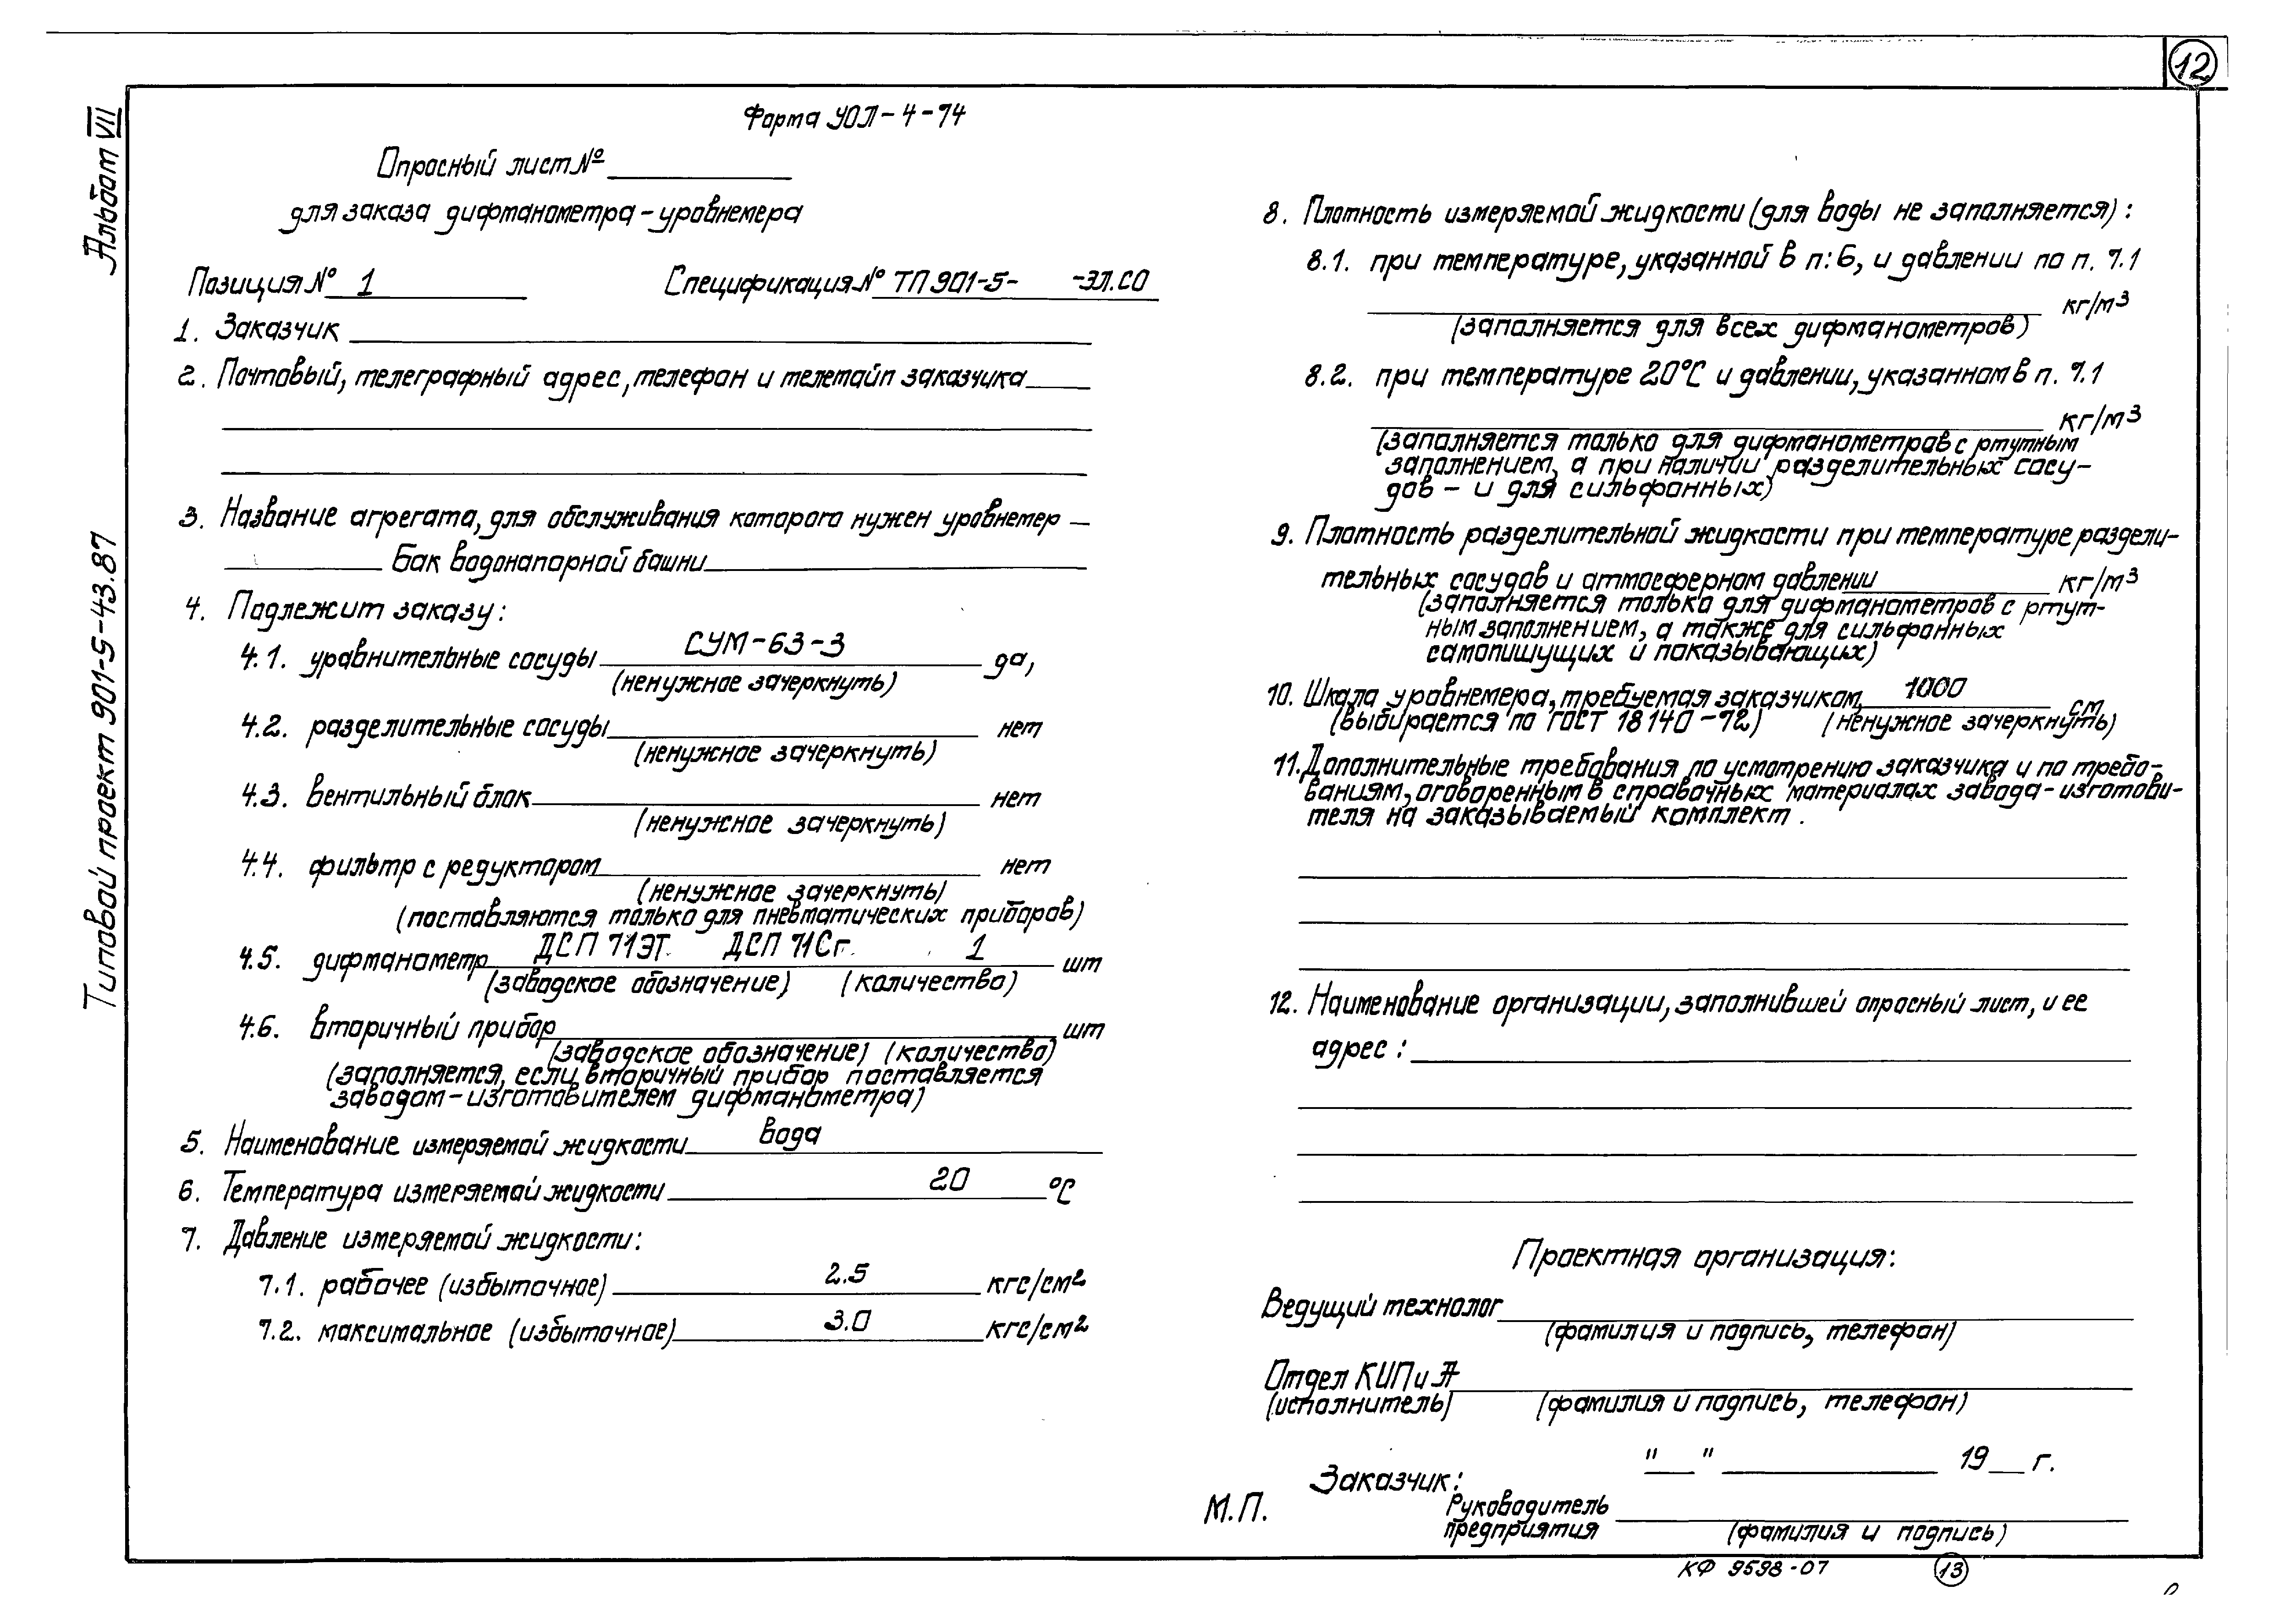 12
Альбом VII
Типовой проект 901-5-43.87
Форма УОЛ-4-74
Опросный лист №
для заказа дифманометра-уровнемера
Позиция № 1 Спецификация № ТП 901-5- -ЭЛ.СО
1. Заказчик
2. Почтовый, телеграфный адрес, телефон и телетайп заказчика
3. Название агрегата, для обслуживания которого нужен уровнемер —
Бак водонапорной башни
4. Подлежит заказу:
4.1. уравнительные сосуды СУМ-63-3 да,
(ненужное зачеркнуть)
4.2. разделительные сосуды нет
(ненужное зачеркнуть)
4.3. вентильный блок нет
(ненужное зачеркнуть)
4.4. фильтр с редуктором нет
(ненужное зачеркнуть)
(поставляются только для пневматических приборов)
4.5. дифманометр ДСП 71ЭТ. ДСП 71Сг. 1 шт
(заводское обозначение) (количество)
4.6. вторичный прибор шт
(заводское обозначение) (количество)
(заполняется, если вторичный прибор поставляется
заводом-изготовителем дифманометра)
5. Наименование измеряемой жидкости вода
6. Температура измеряемой жидкости 20 °С
7. Давление измеряемой жидкости:
7.1. рабочее (избыточное) 2.5 кгс/см²
7.2. максимальное (избыточное) 3.0 кгс/см²
8. Плотность измеряемой жидкости (для воды не заполняется):
8.1. при температуре, указанной в п:6, и давлении по п. 7.1
кг/м³
(заполняется для всех дифманометров)
8.2. при температуре 20°С и давлении, указанном в п. 7.1
кг/м³
(заполняется только для дифманометров с ртутным
заполнением, а при наличии разделительных сосу-
дов - и для сильфонных)
9. Плотность разделительной жидкости при температуре раздели-
тельных сосудов и атмосферном давлении кг/м³
(заполняется только для дифманометров с ртут-
ным заполнением, а также для сильфонных
самопишущих и показывающих)
10. Шкала уровнемера, требуемая заказчиком, 1000 см
(выбирается по ГОСТ 18140-72) (ненужное зачеркнуть)
11. Дополнительные требования по усмотрению заказчика и по требо-
ваниям, оговоренным в справочных материалах завода-изготови-
теля на заказываемый комплект.
12. Наименование организации, заполнившей опросный лист, и ее
адрес:
Проектная организация:
Ведущий технолог
(фамилия и подпись, телефон)
Отдел КИП и А
(исполнитель) (фамилия и подпись, телефон)
" " 19 г.
Заказчик:
М.П. Руководитель
предприятия
(фамилия и подпись)
КФ 9598-07 13